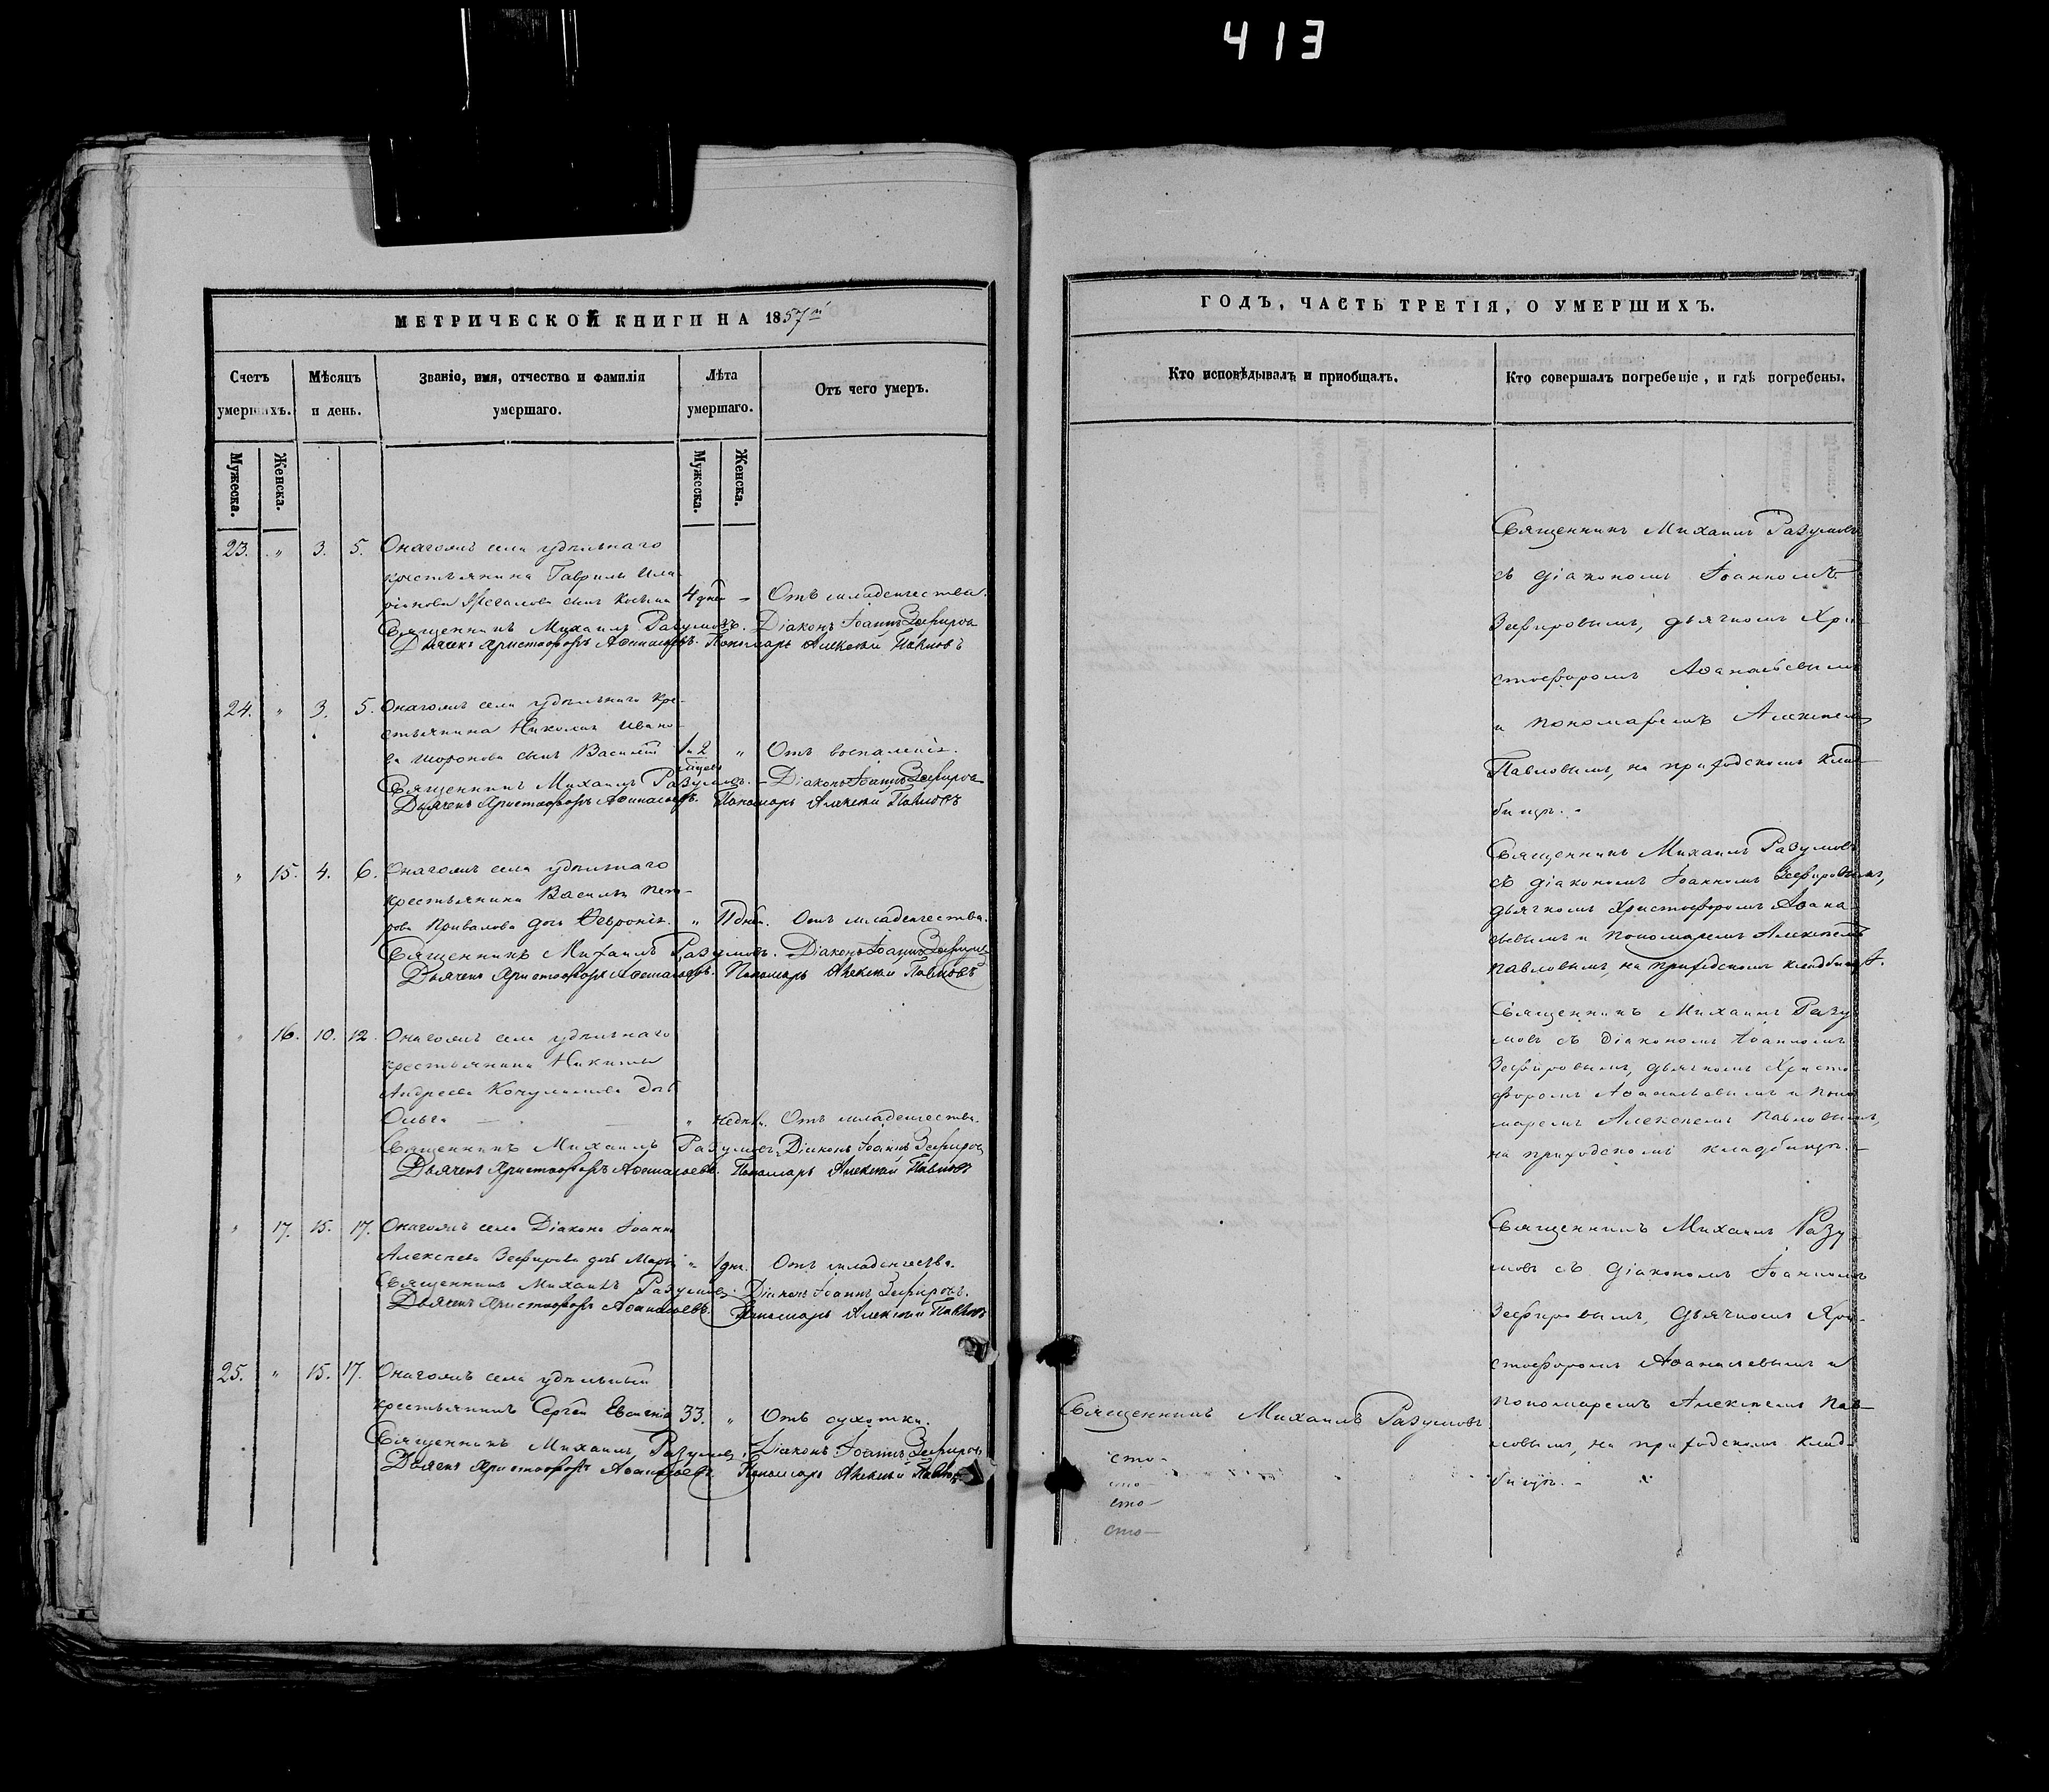 413
МЕТРИЧЕСКОЙ КНИГИ НА 1857й
Счетъ умершихъ.
Мѣсяцъ и день.
Званіе, имя, отчество и фамилія умершаго.
Лѣта умершаго.
Отъ чего умеръ.
Мужеска.
Женска.
Мужеска.
Женска.
23. " 3. 5. Онагожъ села удѣльнаго
крестьянина Гаврилы Ила-
ріонова сынъ Косьма 4 дней - Отъ младенчества.
Священникъ Михаилъ Разумовъ. Діаконъ Іоаннъ Зефировъ
Дьячекъ Христофоръ Аѳанасьевъ. Пономарь Алексѣй Павловъ
24. " 3. 5. Онагожъ села удѣльнаго кре-
стьянина Николая Ивано-
ва Широкова сынъ Василій 1 и 2 " Отъ воспаленія.
Священникъ Михаилъ Разумовъ. - Діаконъ Іоаннъ Зефировъ
Дьячекъ Христофоръ Аѳанасьевъ. Пономарь Алексѣй Павловъ
" 15. 4. 6. Онагожъ села удѣльнаго
крестьянина Василья Пет-
рова Привалова дочь Ѳевронія. " 11 дней. Отъ младенчества.
Священникъ Михаилъ Разумовъ. Діаконъ Іоаннъ Зефировъ
Дьячекъ Христофоръ Аѳанасьевъ. Пономарь Алексѣй Павловъ
" 16. 10. 12. Онагожъ села удѣльнаго
крестьянина Никиты
Андреева дочь
Ольга " Отъ младенчества.
Священникъ Михаилъ Разумовъ. Діаконъ Іоаннъ Зефировъ
Дьячекъ Христофоръ Аѳанасьевъ. Пономарь Алексѣй Павловъ
" 17. 15. 17. Онагожъ села Діакона Іоанна
Алексѣева Зефирова дочь Марья " 1 дня. Отъ младенчества.
Священникъ Михаилъ Разумовъ. Діаконъ Іоаннъ Зефировъ.
Дьячекъ Христофоръ Аѳанасьевъ. Пономарь Алексѣй Павловъ
25. " 15. 17. Онагожъ села удѣльный
крестьянинъ Сергѣй 33. " Отъ сухотки.
Священникъ Михаилъ Разумовъ. Діаконъ Іоаннъ Зефировъ
Дьячекъ Христофоръ Аѳанасьевъ Пономарь Алексѣй Павловъ
ГОДЪ, ЧАСТЬ ТРЕТІЯ, О УМЕРШИХЪ.
Кто исповѣдывалъ и пріобщалъ.
Кто совершалъ погребеніе, и гдѣ погребены.
Священникъ Михаилъ Разумовъ
съ діакономъ Іоанномъ
Зефировымъ, дьячкомъ Хри-
стофоромъ Аѳанасьевымъ
и пономаремъ Алексѣемъ
Павловымъ, на приходскомъ клад-
бищѣ. -
Священникъ Михаилъ Разумовъ
съ діакономъ Іоанномъ Зефировымъ,
дьячкомъ Христофоромъ Аѳана-
сьевымъ и пономаремъ Алексѣемъ
Павловымъ, на приходскомъ кладбищѣ.
Священникъ Михаилъ Разу-
мовъ съ діакономъ Іоанномъ
Зефировымъ, дьячкомъ Христо-
форомъ Аѳанасьевымъ и поно-
маремъ Алексѣемъ Павловымъ,
на приходскомъ кладбищѣ. -
Священникъ Михаилъ Разу-
мовъ съ діакономъ Іоанномъ
Зефировымъ, дьячкомъ Хри-
стофоромъ Аѳанасьевымъ и
пономаремъ Алексѣемъ Пав-
ловымъ, на приходскомъ клад-
бищѣ. -
Священникъ Михаилъ Разумовъ